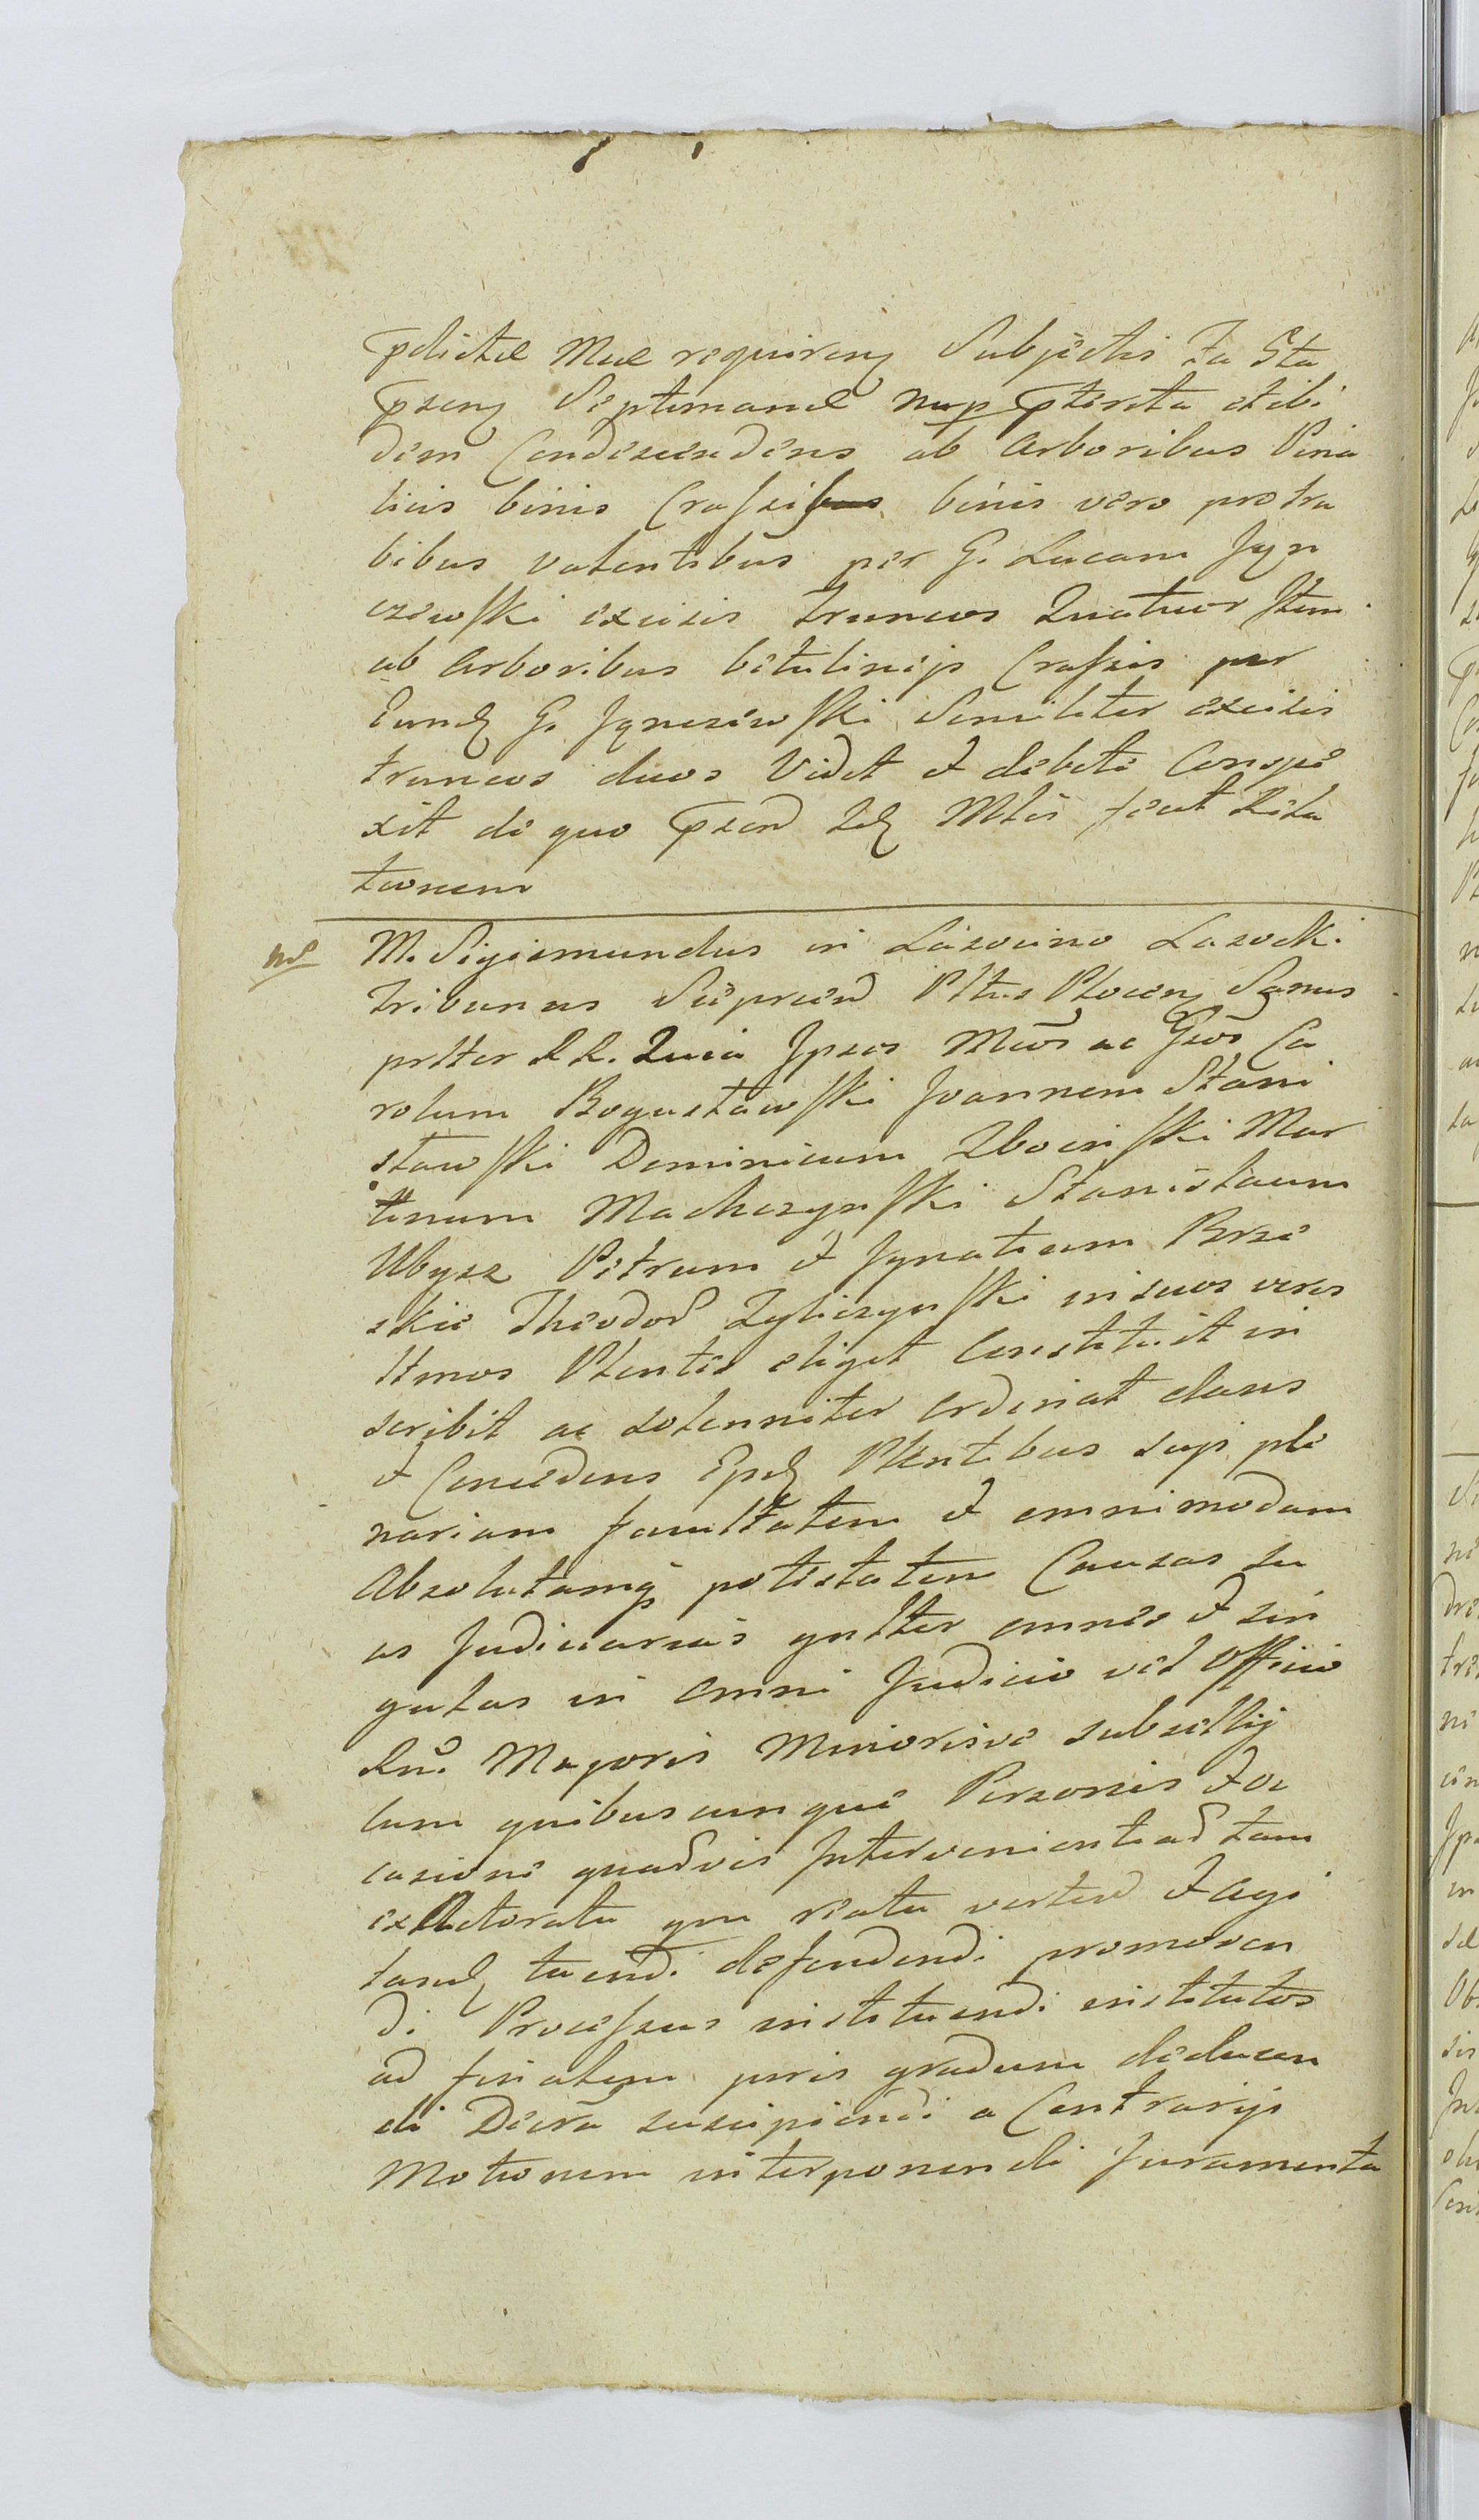 pdictæ Mæ requireng Subjectis Fa Sta
pseng Septimanæ nup pterita et ibi
dem Condescendens ab Arboribus Pina
licis binis Crassibus binis vero pro tra
bibus valentibus per G. Lucam Jgn
czewski excisis truncos Quatuor Item
ab Arboribus betulineis Crassis per
Eund G. Jgnczewski Similiter excisis
truncos duos Vidit et debite Conspe
xit de quo psend Idq Mltis fecit Rela
tionem
M. Sigismundus in Lazocino Lazocki
tribunus Sieprcen Pltus Plocens Sanus
prltter RR. Quia Jpsos Mcos ac Gsos Ca
rolum Bogusławski Joannem Stani
sławski Dominicum Zboinski Mar
tinum Machczynski Stanislaum
Ubysz Petrum et Jgnatium Brze
skie Theodor Zgliczynski in suos veros
ltmos Plentes eligit Constituit in
scribit ac solenniter ordinat dans
et Concedens Epd Plentibus suis ple
nariam facultatem et omnimodam
Absolutamq potestatem Causas su
as Judiciarias gnltter omnes et sin
gulas in omni Judicio vel Officio
Rni Majoris Minorisve subsellij
cum quibuscunque Personis et oc
casione quadvis Intervenientiad tam
ex Actoratu qm reatu verten et agi
tand tuendi defendendi promoven
di Processus instituendi institutos
ad finalem juris gradum deducen
di Decra suscipiendi a Contrarijs
Motionem interponendi Juramenta